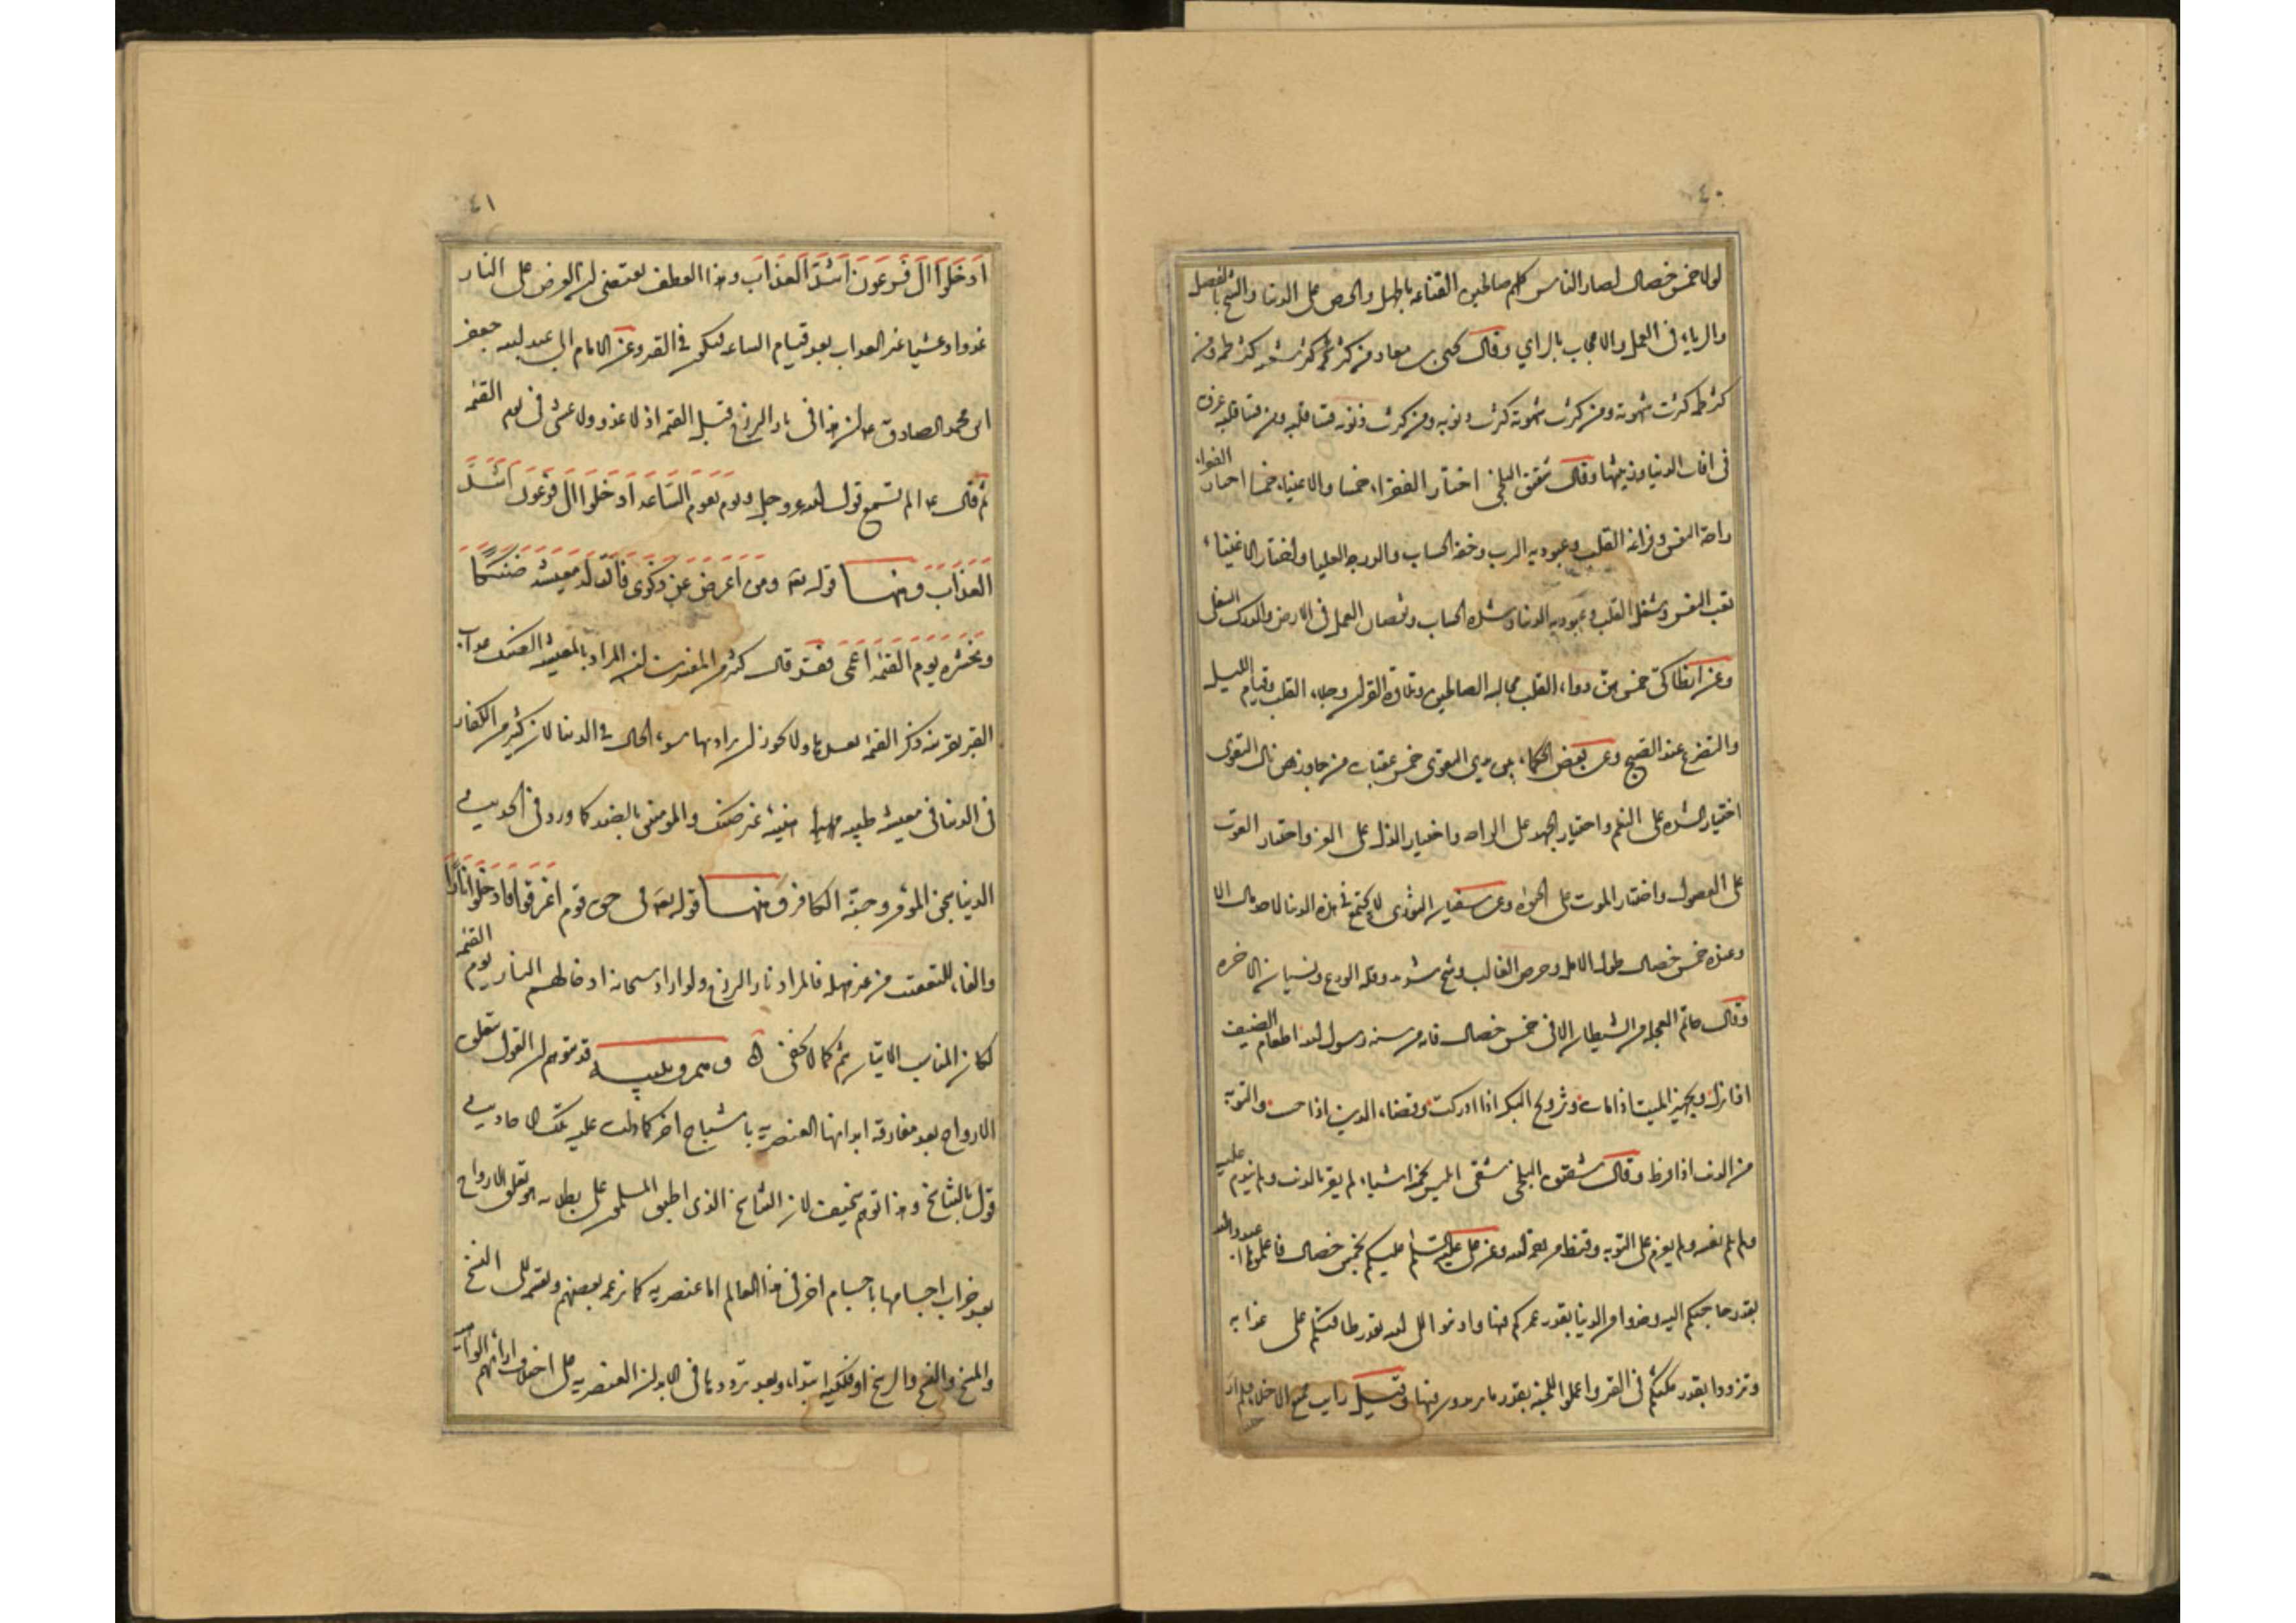 ٤٠
لولا خمس خصال لصار الناس كلهم صالحين القناعة بالجهل والحرص على الدنيا والشح بالفضل
والرياء في العمل والاعجاب بالراي وقال يحيى بن معاد من كثر شبعه كثر لحمه ومن
كثر لحمه كثرت شهوته ومن كثرت شهوته كثرت ذنوبه ومن كثرت ذنوبه قسا قلبه ومن قسا قلبه غرق
في افات الدنيا وزينتها وقال شقيق البلخي اختار الفقراء خمسا والاغنياء خمسا اختار الفقراء
راحة النفس وفراغة القلب وعبودية الرب وخفة الحساب والدرجة العليا واختار الاغنياء
تعب النفس وشغل القلب وعبودية الدنيا وشدة الحساب والدرك السفلى
وعن انطاكي خمس هن دواء القلب مجالسة الصالحين وتلاوة القران وخلاء القلب وقيام الليل
والتضرع عند الصبح وعن بعض الحكماء بين يدي التقوى خمس عقبات من جاوزهن نال التقوى
اختيار الشدة على النعم واختيار الجهد على الراحة واختيار الذل على العز واختيار القوت
على الفضول واختيار الموت على الحيوة وعن سفيان الثوري لا يجتمع في هذه الدنيا لاحد مال الا
وعنده خمس خصال طول الامل وحرص الغالب وشح شديد وقلة الورع ونسيان الاخرة
وقال حاتم العجلة من الشيطان الا في خمس خصال فانه من سنة رسول الله اطعام الضيف
اذا نزل وتجهيز الميت اذا مات وتزويج البكر اذا ادركت وقضاء الدين اذا والتوبة
من الذنب اذا فرط وقال شقيق البلخي شقى ابليس بخمسة اشياء لم يقر بالذنب ولم يندم عليه
ولم يلم نفسه ولم يعزم على التوبة وقنط من رحمة الله وعن علي عليه السلام عليكم بخمس خصال فاعملوا بها اعبدوا الله
بقدر حاجتكم اليه وخذوا من الدنيا بقدر عمركم فيها واذنبوا الله بقدر طاقتكم على عذابه
وتزودوا بقدر مكثكم في القبر واعملوا للجنة بقدر ما تريدون فيها وقيل رايت جميع الاخلاء فلم ار
٤١
ادخلوا ال فرعون اشد العذاب وهذا العطف يقتضي ان العرض على النار
غدوا وعشيا غير العذاب بعد قيام الساعة فيكون في القبر وعن الامام ابي عبد الله جعفر
ابن محمد الصادق ع ان هذا في نار البرزخ قبل القيمة اذ لا غدو ولا عشى في يوم القيمة
ثم قال ع الم تسمع قول الله عز وجل ويوم تقوم الساعة ادخلوا ال فرعون اشد
العذاب ومنها قوله تع ومن اعرض عن ذكري فان له معيشة ضنكا
ونحشره يوم القيمة اعمى فقد قال كثير من المفسرين ان المراد بالمعيشة الضنك عذاب
القبر بقرينة ذكر القيمة بعدها ولا يجوز ان يراد بها سوء الحال في الدنيا لان كثير من الكفار
في الدنيا في معيشة طيبة هنيئة غير ضنك والمؤمنين بالضد كما ورد في الحديث
الدنيا سجن المؤمن وجنة الكافر ومنها قوله تع في حق قوم اغرقوا فادخلوا نارا
والفاء للتعقيب من غير مهلة فالمراد نار البرزخ ولو اراد سبحانه ادخالهم النار يوم القيمة
لكان المناسب الاتيان بثم كما لا يخفى قد يتوهم ان القول بتعلق
الارواح بعد مفارقة ابدانها العنصرية باشباح اخر كما دلت عليه تلك الاحاديث
قول بالتناسخ وهذا توهم سخيف لان التناسخ الذي اطبق المسلمون على بطلانه هو تعلق الارواح
بعد خراب اجسامها باجسام اخر في هذا العالم اما عنصرية كما زعمه بعضهم وتقسم الى النسخ
والمسخ والفسخ والرسخ او فلكية ابتداء وبعد ترددها في الابدان العنصرية على اختلاف ارائهم